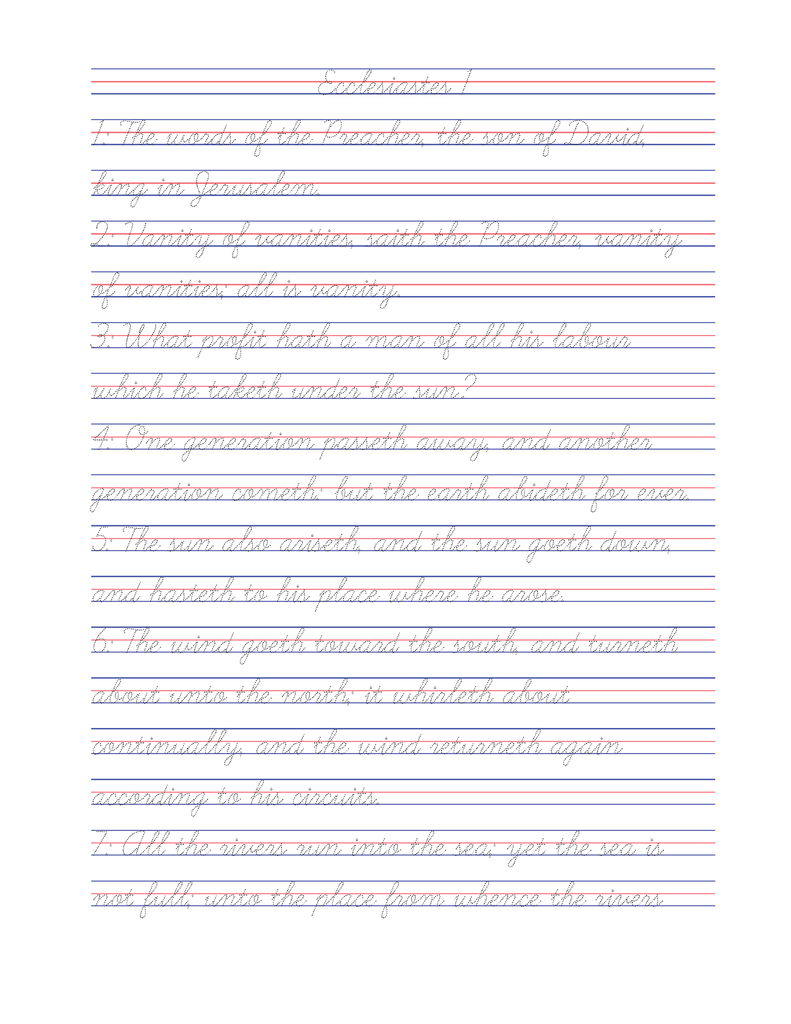 Ecclesiastes 1
1: The words of the Preacher, the son of David,
king in Jerusalem.
2: Vanity of vanities, saith the Preacher, vanity
of vanities; all is vanity.
3: What profit hath a man of all his labour
which he taketh under the sun?
4: One generation passeth away, and another
generation cometh: but the earth abideth for ever.
5: The sun also ariseth, and the sun goeth down,
and hasteth to his place where he arose.
6: The wind goeth toward the south, and turneth
about unto the north; it whirleth about
continually, and the wind returneth again
according to his circuits.
7: All the rivers run into the sea; yet the sea is
not full; unto the place from whence the rivers